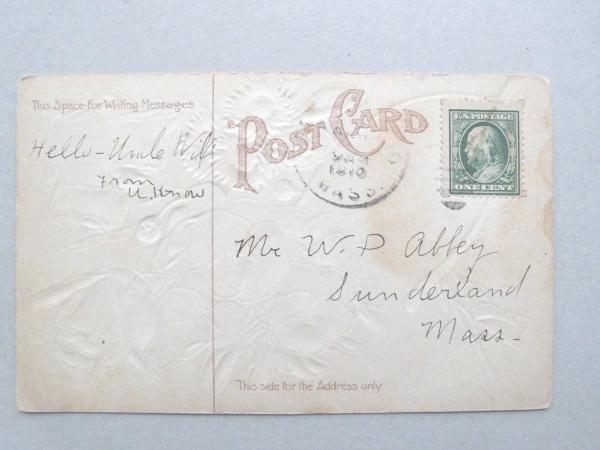 This Space for Writing Messages
POST CARD
Hello - Uncle Will
From
U. Know
1910
MASS.
U.S. POSTAGE
ONE CENT
Mr W. P. Abbey
Sunderland
Mass.
This side for the Address only